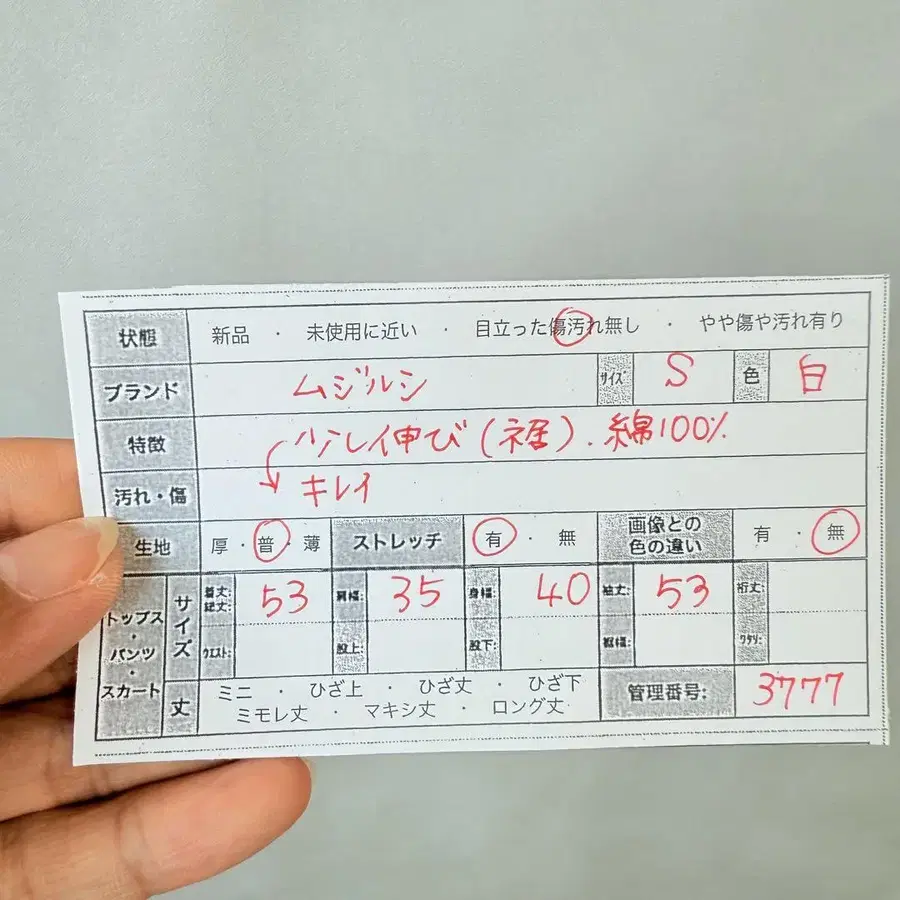 状態 新品 ・ 未使用に近い ・ 目立った傷汚れ無し ・ やや傷や汚れ有り
ブランド ムジルシ サイズ S 色 白
特徴 少し伸び(裾).綿100%
汚れ・傷 キレイ
生地 厚・普・薄 ストレッチ 有・無 画像との色の違い 有・無
トップス・パンツ・スカート サイズ 着丈:総丈: 53 肩幅: 35 身幅: 40 袖丈: 53 裄丈:
ウエスト: 股上: 股下: 裾幅: ワタリ:
丈 ミニ ・ ひざ上 ・ ひざ丈 ・ ひざ下 管理番号: 3777
ミモレ丈 ・ マキシ丈 ・ ロング丈